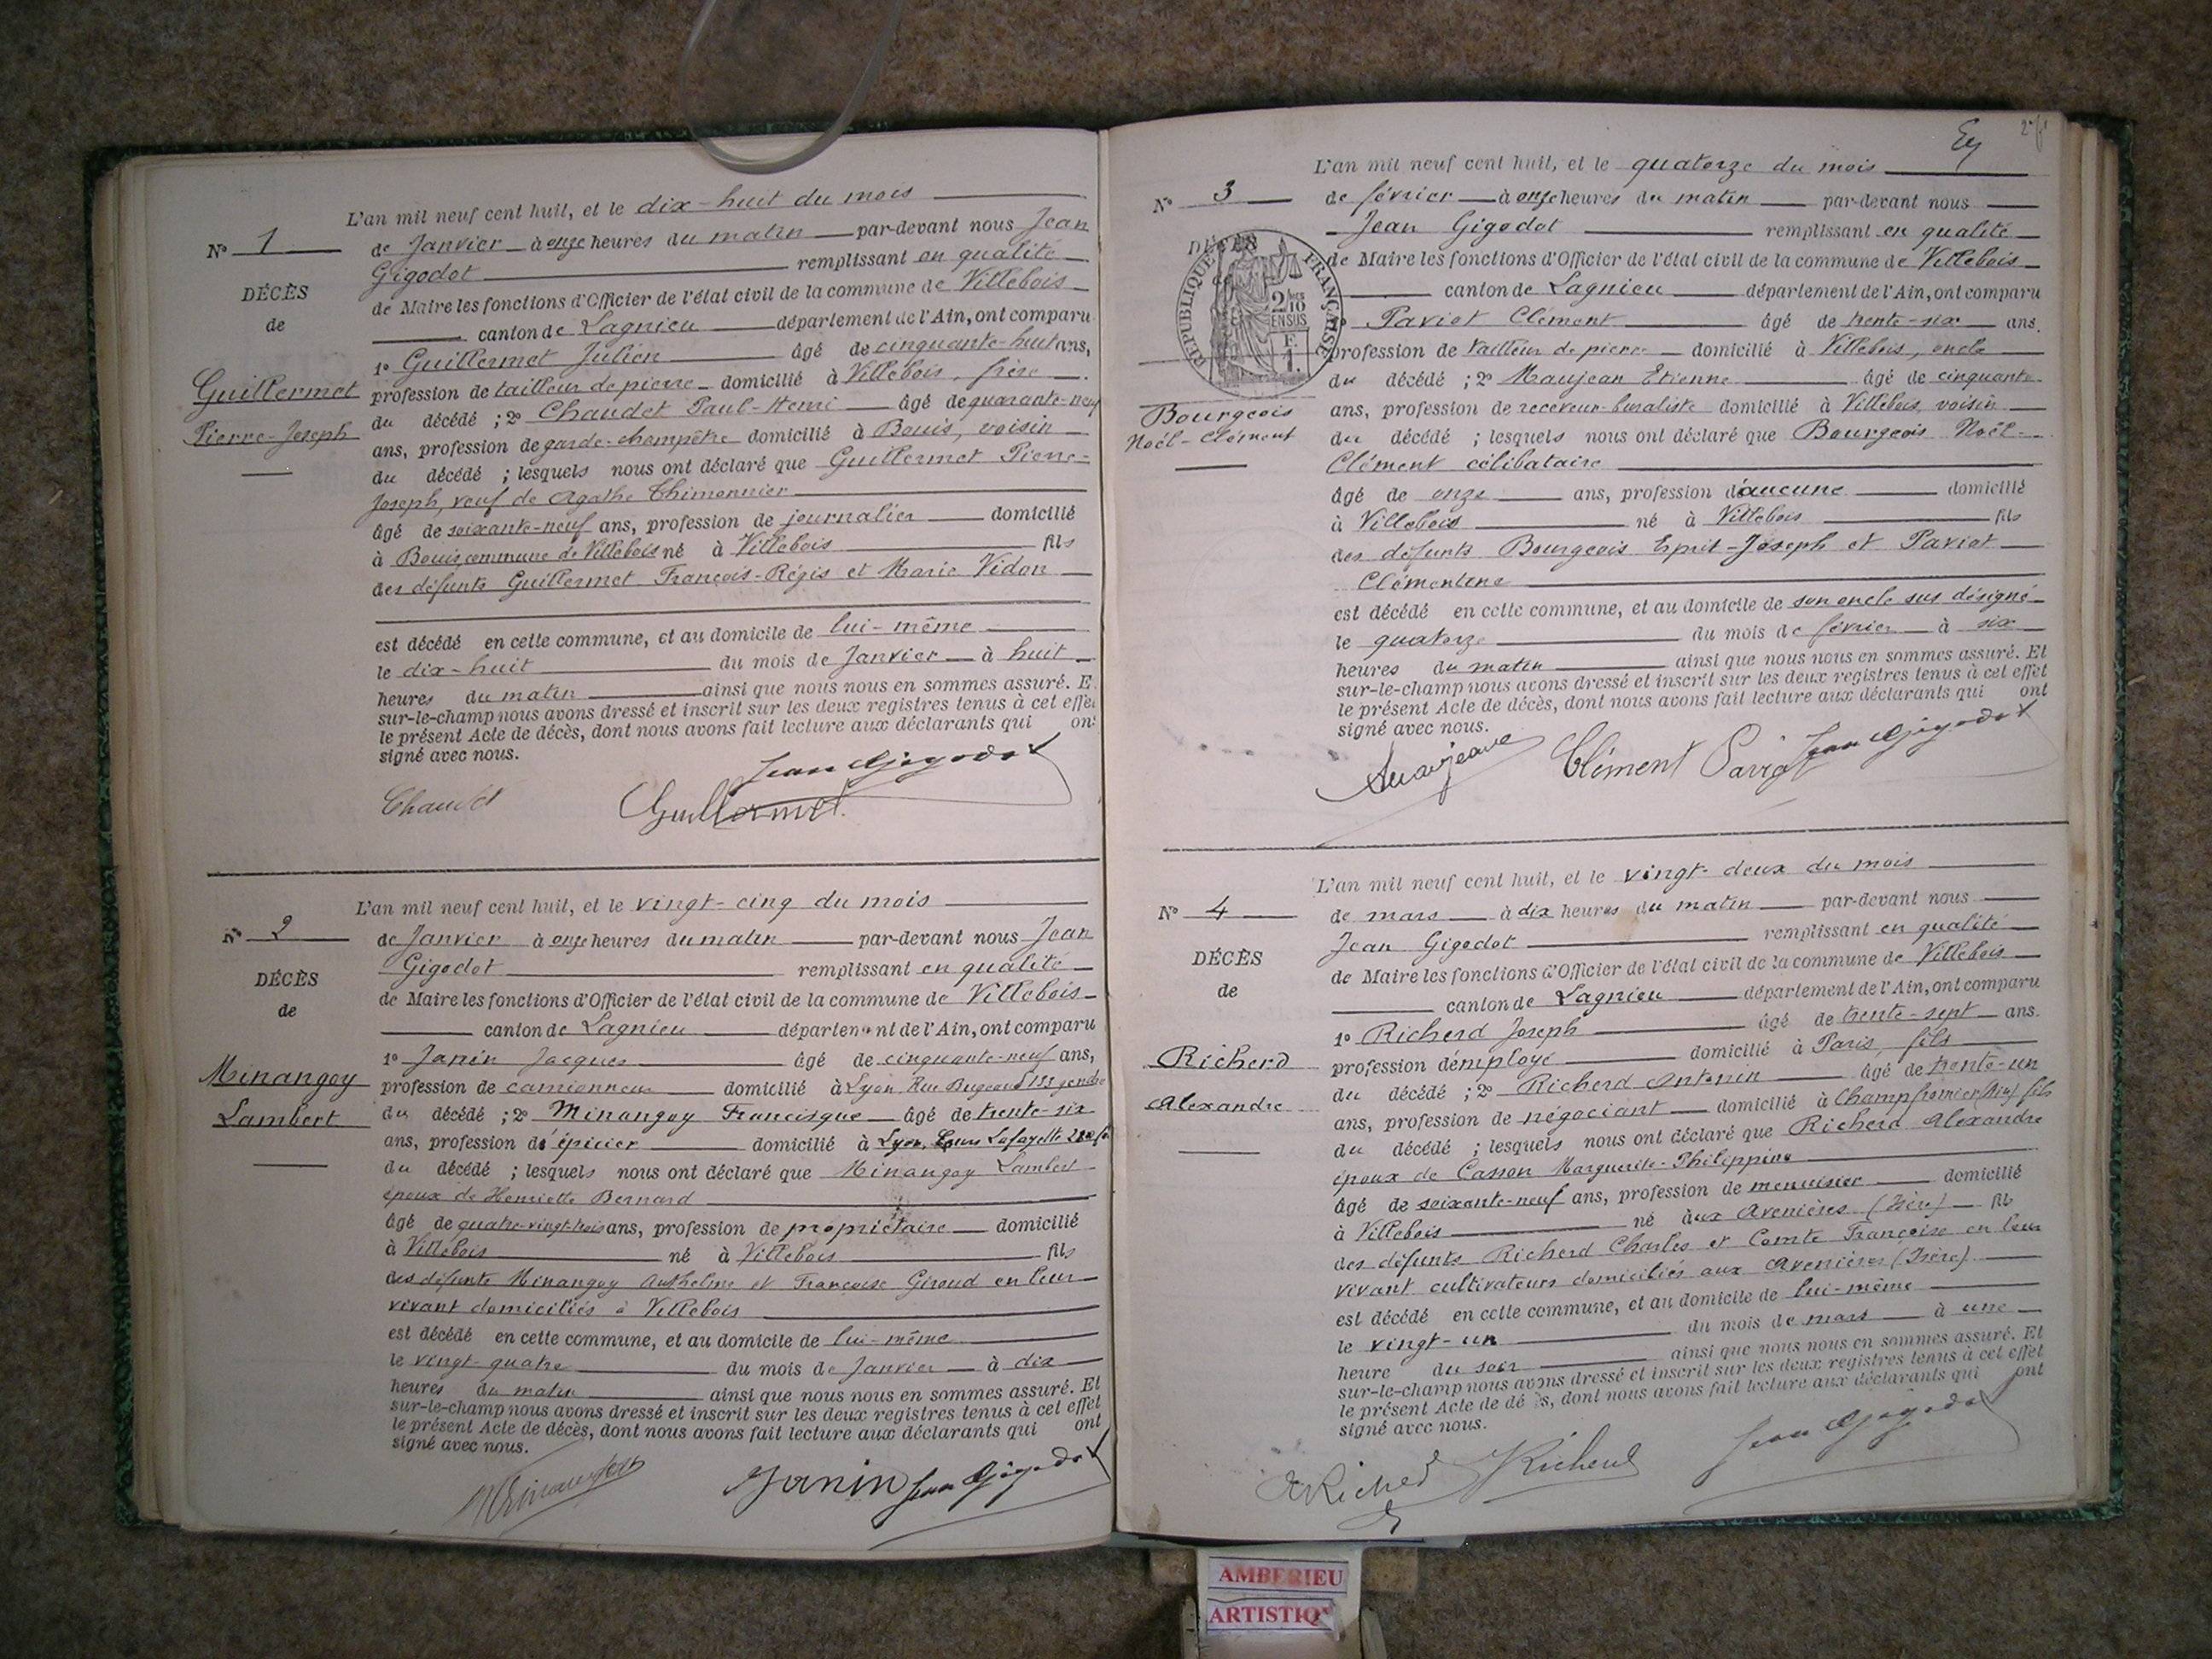 L'an mil neuf cent huit, et le dix-huit du mois
Nº 1
de Janvier à onze heures du matin par-devant nous Jean
Gigodot remplissant en qualité
DÉCÈS
de Maire les fonctions d'Officier de l'état civil de la commune de Villebois
de
canton de Lagnieu département de l'Ain, ont comparu
1º Guillermet Julien âgé de cinquante-huit ans,
Guillermet
profession de tailleur de pierre domicilié à Villebois, frère
Pierre-Joseph
du décédé ; 2º Chaudet Paul-Henri âgé de quarante-neuf
ans, profession de garde-champêtre domicilié à Bouis, voisin
du décédé ; lesquels nous ont déclaré que Guillermet Pierre-
Joseph, veuf de Agathe Thimonnier
âgé de soixante-neuf ans, profession de journalier domicilié
à Bouis, commune de Villebois né à Villebois fils
des défunts Guillermet François-Régis et Marie Vidon
est décédé en cette commune, et au domicile de lui-même
le dix-huit du mois de Janvier à huit
heures du matin ainsi que nous nous en sommes assuré. E
sur-le-champ nous avons dressé et inscrit sur les deux registres tenus à cet effet
le présent Acte de décès, dont nous avons fait lecture aux déclarants qui ont
signé avec nous.
Jean Gigodot
Chaudet Guillermet
L'an mil neuf cent huit, et le vingt-cinq du mois
Nº 2
de Janvier à onze heures du matin par-devant nous Jean
Gigodot remplissant en qualité
DÉCÈS
de Maire les fonctions d'Officier de l'état civil de la commune de Villebois
de
canton de Lagnieu département de l'Ain, ont comparu
1º Janin Jacques âgé de cinquante-neuf ans,
Minangoy
profession de camionneur domicilié à Lyon Rue Bugeaud 133 gendre
Lambert
du décédé ; 2º Minangoy Francisque âgé de trente-six
ans, profession d'épicier domicilié à Lyon, Cours Lafayette
du décédé ; lesquels nous ont déclaré que Minangoy Lambert
époux de Henriette Bernard
âgé de quatre-vingt-trois ans, profession de propriétaire domicilié
à Villebois né à Villebois fils
des défunts Minangoy Anthelme et Françoise Giroud en leur
vivant domiciliés à Villebois
est décédé en cette commune, et au domicile de lui-même
le vingt-quatre du mois de Janvier à dix
heures du matin ainsi que nous nous en sommes assuré. Et
sur-le-champ nous avons dressé et inscrit sur les deux registres tenus à cet effet
le présent Acte de décès, dont nous avons fait lecture aux déclarants qui ont
signé avec nous.
Janin Jean Gigodot
L'an mil neuf cent huit, et le quatorze du mois
Nº 3
de février à onze heures du matin par-devant nous
Jean Gigodot remplissant en qualité
DÉCÈS
de Maire les fonctions d'Officier de l'état civil de la commune de Villebois
RÉPUBLIQUE FRANÇAISE
2/10
EN SUS
F.
1.
canton de Lagnieu département de l'Ain, ont comparu
Paviot Clément âgé de trente-six ans.
profession de tailleur de pierre domicilié à Villebois, oncle
du décédé ; 2º Maujean Etienne âgé de cinquante
Bourgeois
Noël-Clément
ans, profession de receveur-buraliste domicilié à Villebois, voisin
du décédé ; lesquels nous ont déclaré que Bourgeois Noël-
Clément célibataire
âgé de onze ans, profession d'aucune domicilié
à Villebois né à Villebois fils
des défunts Bourgeois Esprit-Joseph et Paviot
Clémentine
est décédé en cette commune, et au domicile de son oncle sus désigné
le quatorze du mois de février à six
heures du matin ainsi que nous nous en sommes assuré. Et
sur-le-champ nous avons dressé et inscrit sur les deux registres tenus à cet effet
le présent Acte de décès, dont nous avons fait lecture aux déclarants qui ont
signé avec nous.
Maujean Clément Paviot Jean Gigodot
L'an mil neuf cent huit, et le vingt-deux du mois
Nº 4
de mars à dix heures du matin par-devant nous
Jean Gigodot remplissant en qualité
DÉCÈS
de Maire les fonctions d'Officier de l'état civil de la commune de Villebois
de
canton de Lagnieu département de l'Ain, ont comparu
1º Richerd Joseph âgé de trente-sept ans.
Richerd
profession d'employé domicilié à Paris, fils
Alexandre
du décédé ; 2º Richerd Antonin âgé de trente-un
ans, profession de négociant domicilié à Champfromier (Ain) fils
du décédé ; lesquels nous ont déclaré que Richerd Alexandre
époux de Casson Marguerite-Philippine
âgé de soixante-neuf ans, profession de menuisier domicilié
à Villebois né aux Avenières (Isère) fils
des défunts Richerd Charles et Comte Françoise en leur
vivant cultivateurs domiciliés aux Avenières (Isère)
est décédé en cette commune, et au domicile de lui-même
le vingt-un du mois de mars à une
heure du soir ainsi que nous nous en sommes assuré. Et
sur-le-champ nous avons dressé et inscrit sur les deux registres tenus à cet effet
le présent Acte de décès, dont nous avons fait lecture aux déclarants qui ont
signé avec nous.
A Richerd J Richerd Jean Gigodot
AMBERIEU
ARTISTIQ